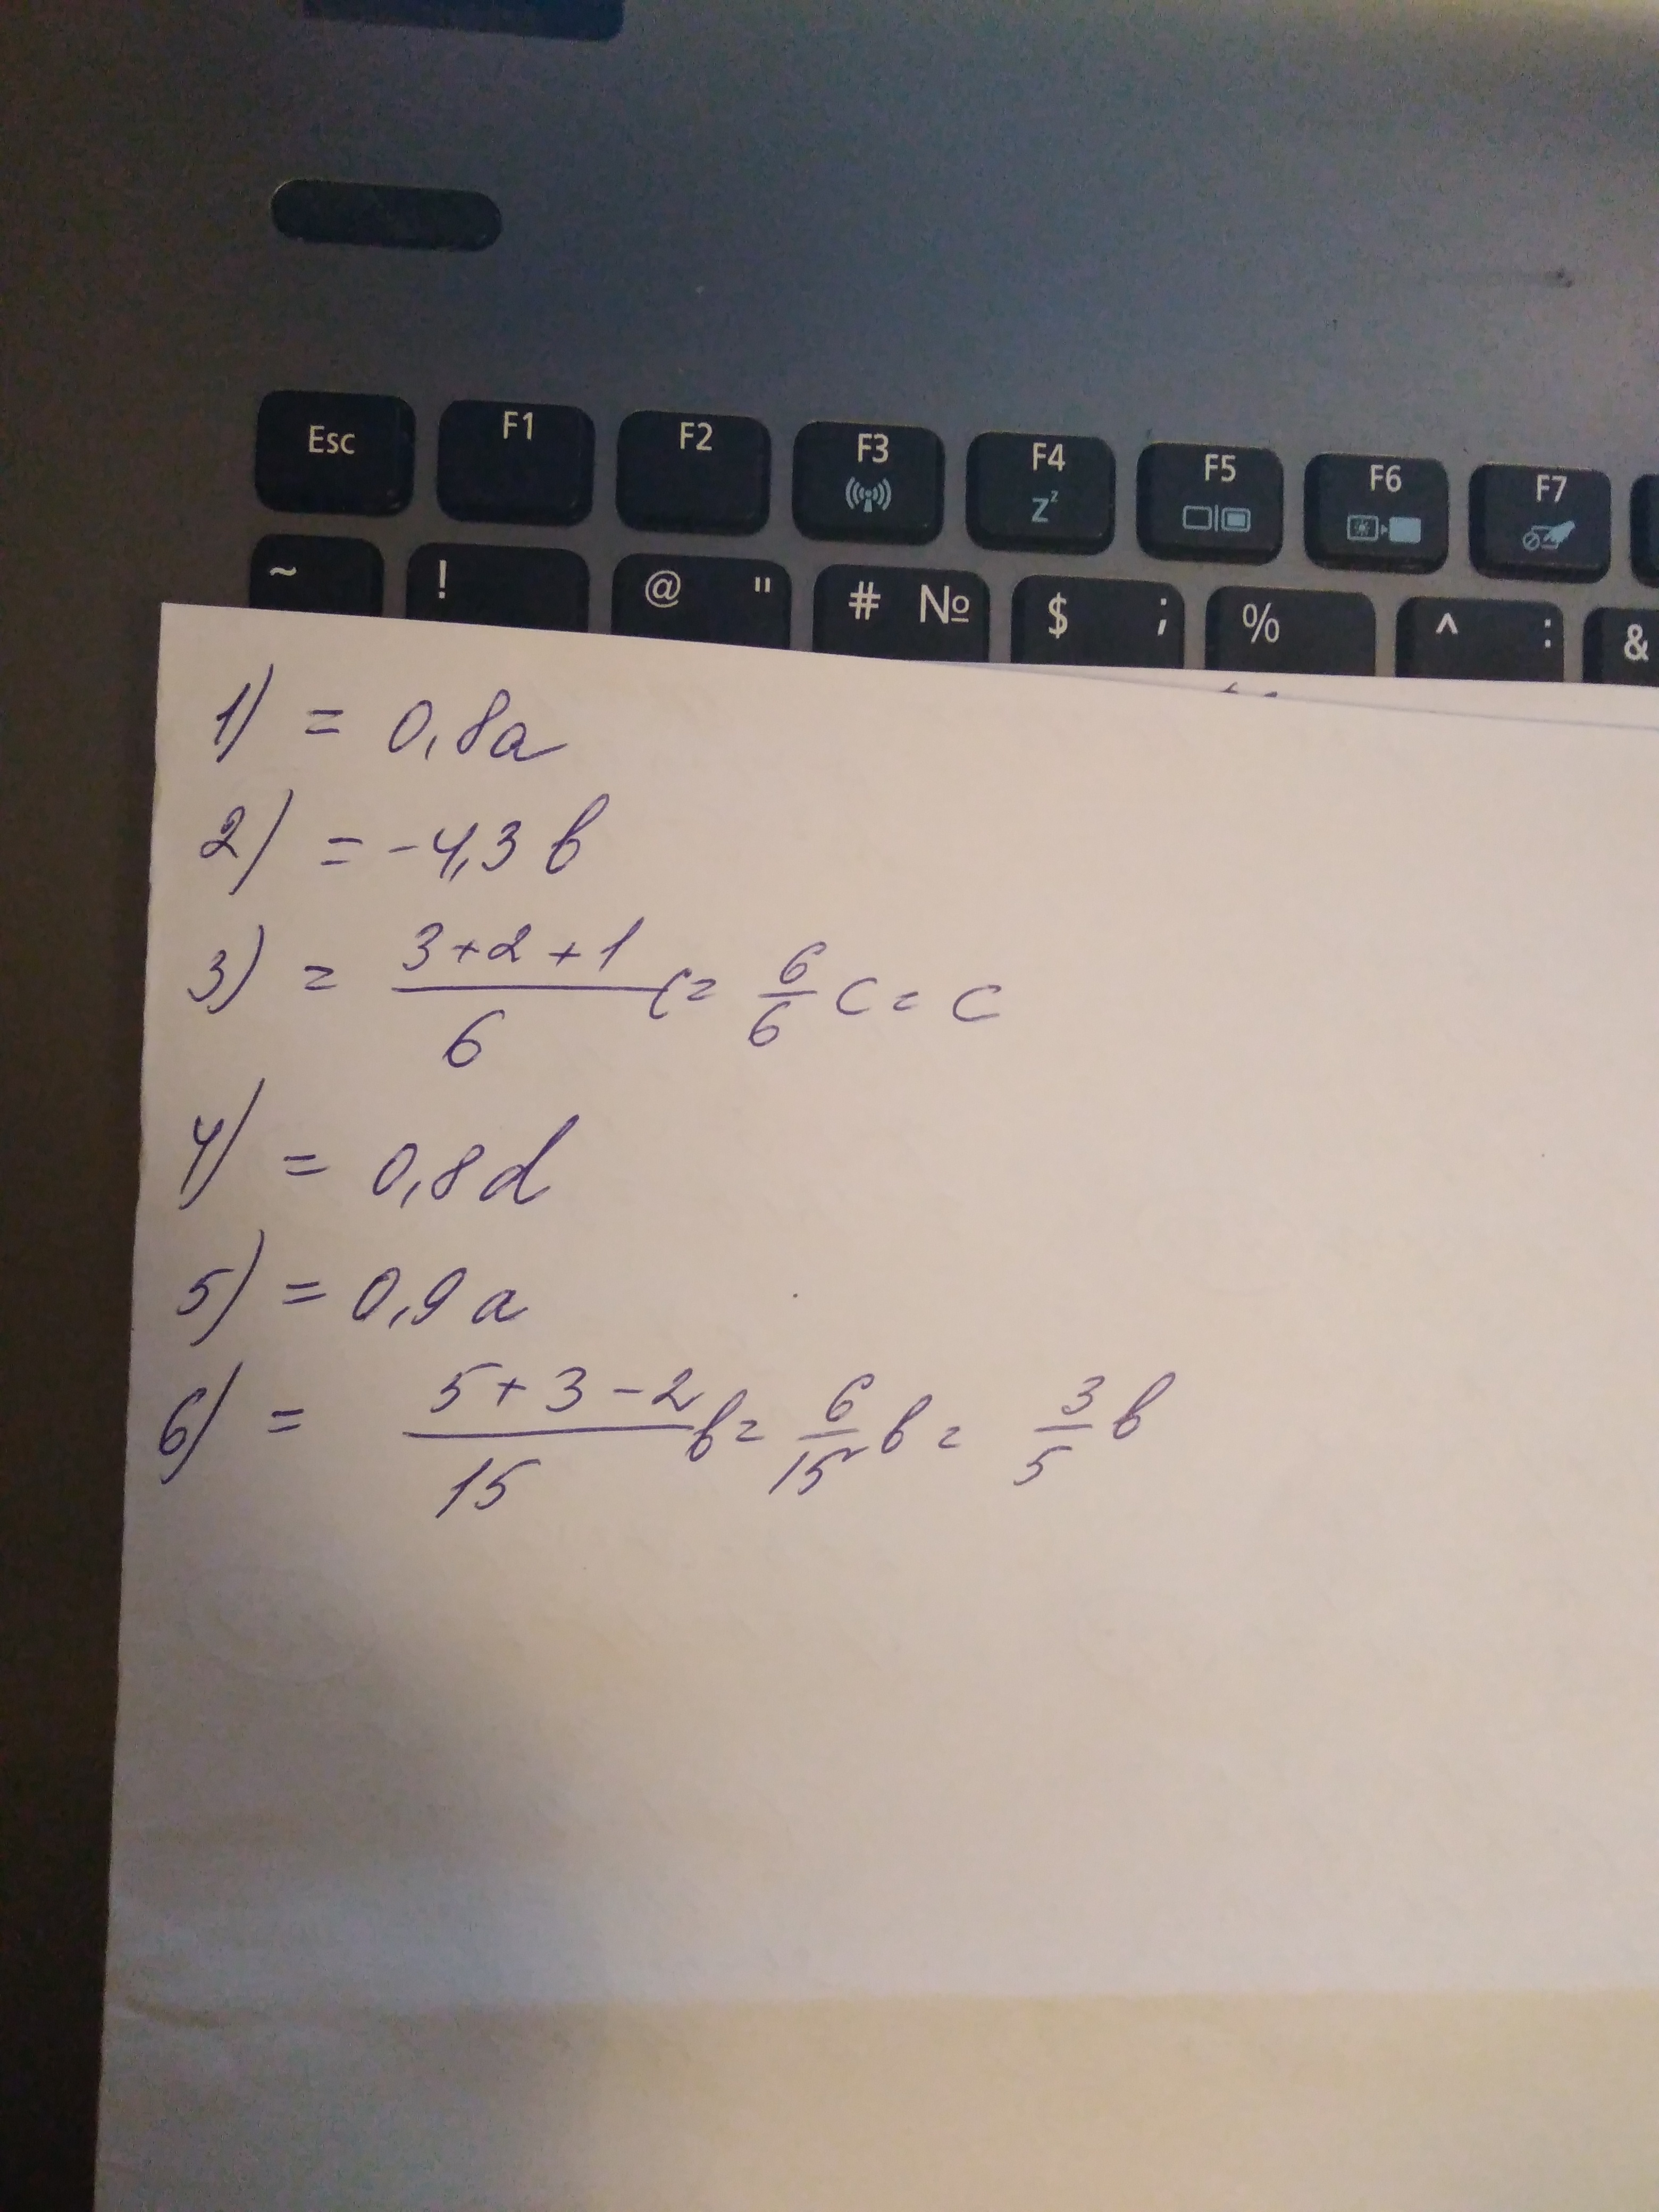 Esc F1 F2 F3 F4 Zz F5 F6 F7
~ ! @ " # № $ ; % ^ : &
1) = 0,8a
2) = -4,3 b
3) = (3+2+1)/6 c = 6/6 c = c
4) = 0,8d
5) = 0,9 a
6) = (5+3-2)/15 b = 6/15 b = 3/5 b